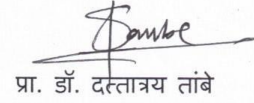 प्रा. डॉ. दत्तात्रय तांबे